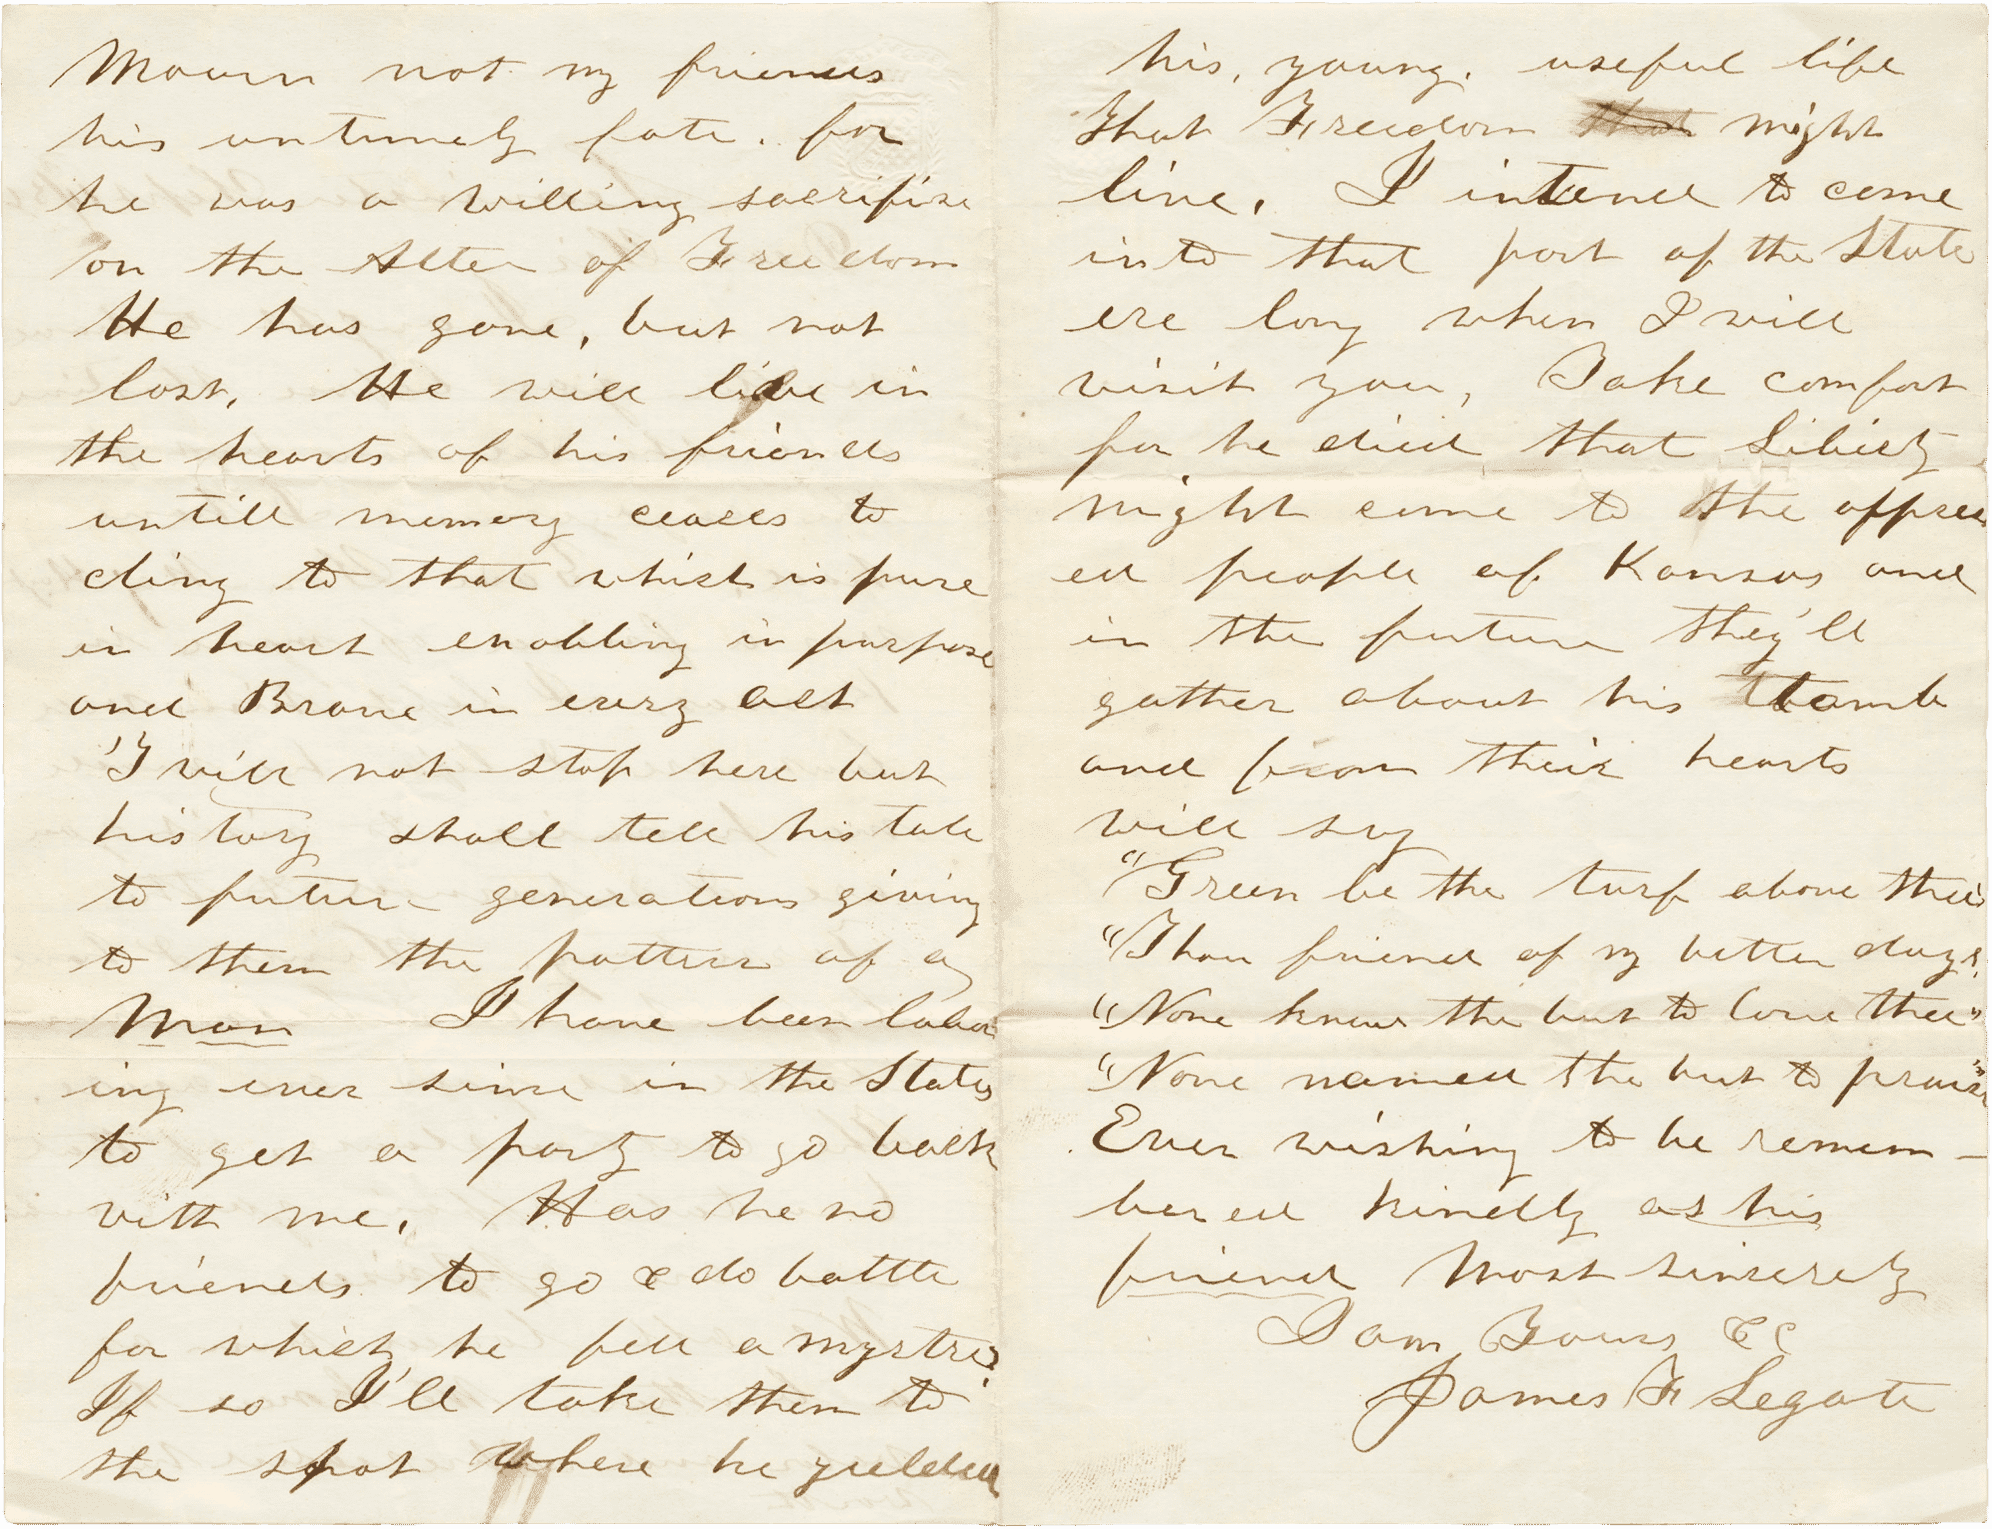 Mourn not my friends
his untimely fate. for
he was a willing sacrifise
on the Alter of Freedom
He has gone, but not
lost, He will live in
the hearts of his friends
untill memory ceases to
cling to that which is pure
in heart enobling in purpose
and Brave in every act
I will not stop here but
history shall tell his tale
to future generations giving
to them the pattern of a
Man I have been labor
ing ever since in the States
to get a party to go back
with me. Has he no
friends to go & do battle
for which he fell a mystre?
If so I'll take them to
the spot where he yielded
his, young. useful life
that Freedom that might
live, I intend to come
into that part of the State
ere long when I will
visit you, Take comfort
for he died that Liberty
might come to the oppress
ed people of Kansas and
in the future they'll
gather about his tomb
and from their hearts
will say
"Green be the turf above thee
"Thou friend of my better days,
"None knew the but to love thee"
"None named the but to praise"
Ever wishing to be remem-
bered kindly as his
friend Most sincerely
I am Yours &c
James F Legate